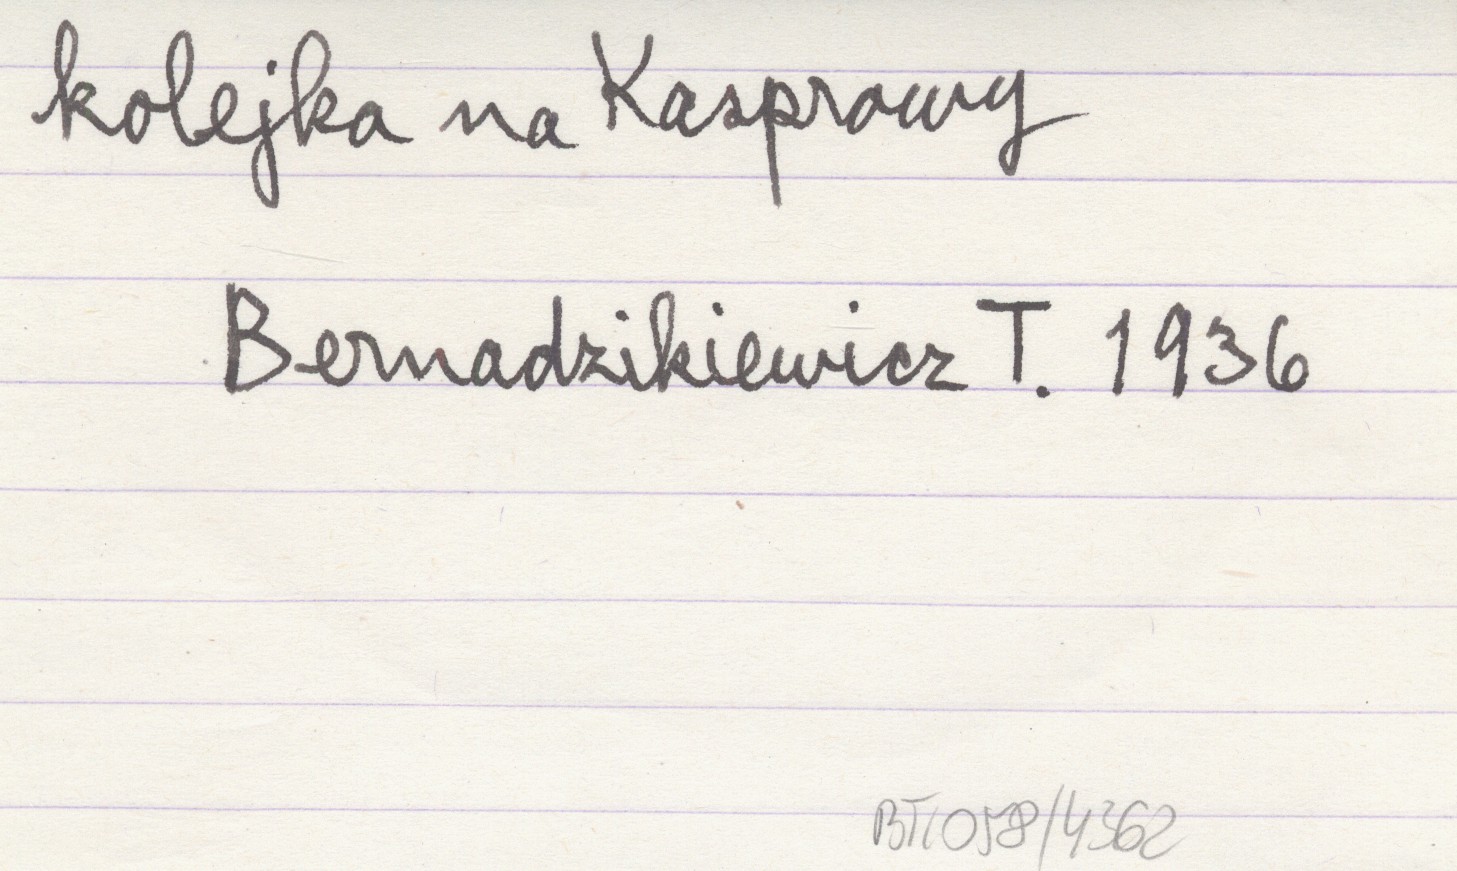 kolejka na Kasprowy
Bernadzikiewicz T. 1936
BT/058/4362